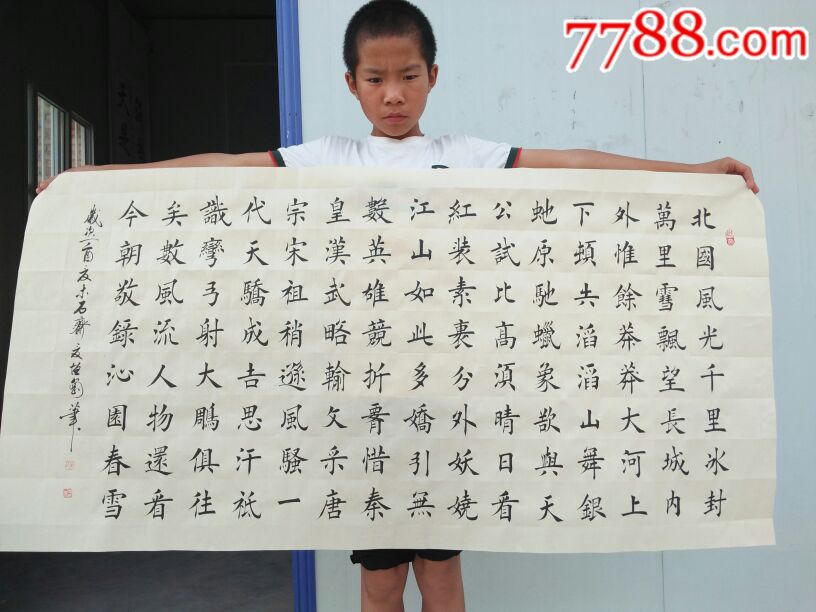 7788.com
北國風光千里冰封
萬里雪飄望長城內
外惟餘莽莽大河上
下頓失滔滔山舞銀
虵原馳蠟象欲與天
公試比高須晴日看
紅裝素裹分外妖嬈
江山如此多嬌引無
數英雄競折腰惜秦
皇漢武略輸文采唐
宗宋祖稍遜風騷一
代天驕成吉思汗祗
識彎弓射大鵰俱往
矣數風流人物還看
今朝敬録沁園春雪
歲次酉夏石齋筆